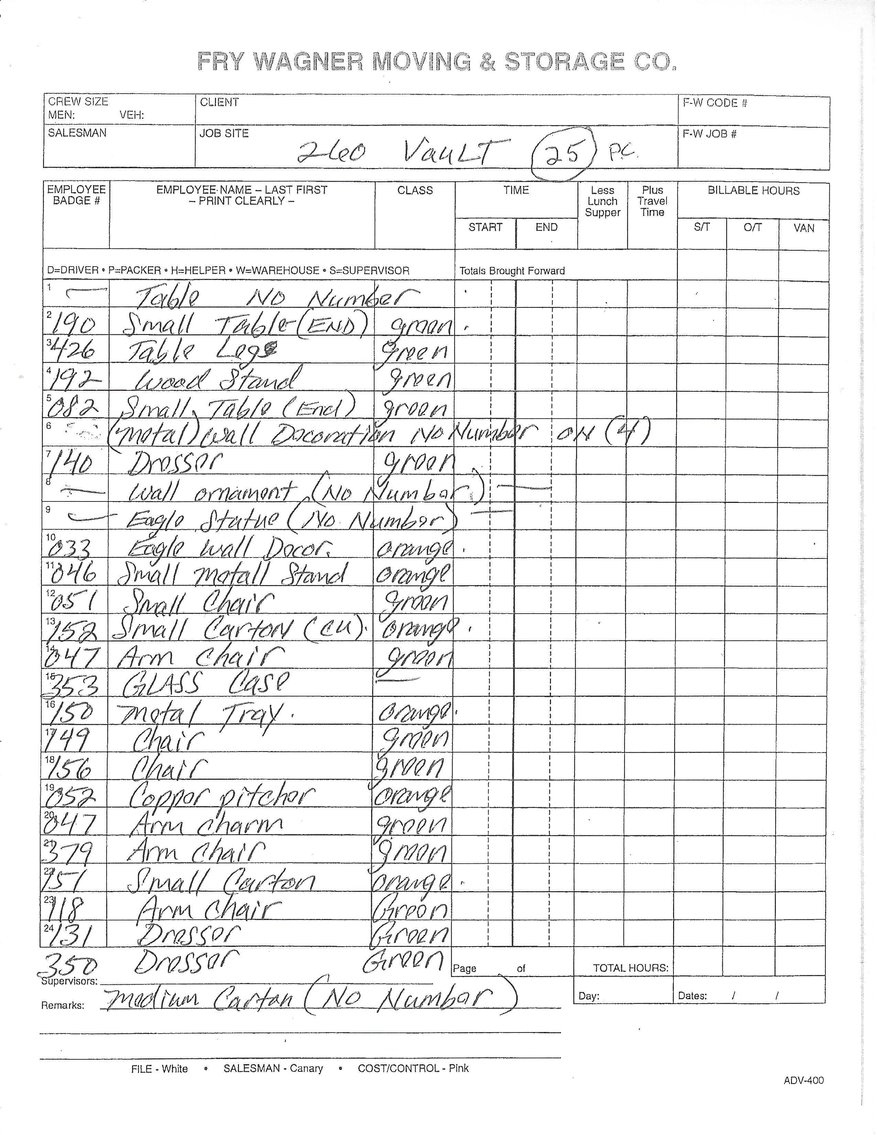 FRY WAGNER MOVING & STORAGE CO.
CREW SIZE
MEN: VEH:
CLIENT
F-W CODE #
SALESMAN
JOB SITE
F-W JOB #
260 VauLT 25 PC.
EMPLOYEE BADGE #
EMPLOYEE NAME – LAST FIRST
– PRINT CLEARLY –
CLASS
TIME
START END
Less Lunch Supper
Plus Travel Time
BILLABLE HOURS
S/T O/T VAN
D=DRIVER • P=PACKER • H=HELPER • W=WAREHOUSE • S=SUPERVISOR Totals Brought Forward
1 — Table No Number
2 190 Small Table (END) green
3 426 Table Legs green
4 192 Wood Stand green
5 082 Small Table (End) green
6 (Metal) Wall Decoration No Number ON (4)
7 140 Dresser green
8 — Wall ornament (No Number) —
9 — Eagle Statue (No Number) —
10 033 Eagle Wall Decor. orange
11 046 Small Metall Stand orange
12 051 Small Chair green
13 152 Small Carton (CU). orange
14 047 Arm Chair green
15 353 GLASS Case —
16 150 Metal Tray. orange
17 149 Chair green
18 156 Chair green
19 052 Copper pitcher orange
20 047 Arm Charm green
21 379 Arm Chair green
22 151 Small Carton orange
23 118 Arm Chair Green
24 131 Dresser Green
350 Dresser Green
Page of
TOTAL HOURS:
Supervisors:
Remarks: Medium Cartan (No Number)
Day: Dates: / /
FILE - White • SALESMAN - Canary • COST/CONTROL - Pink
ADV-400